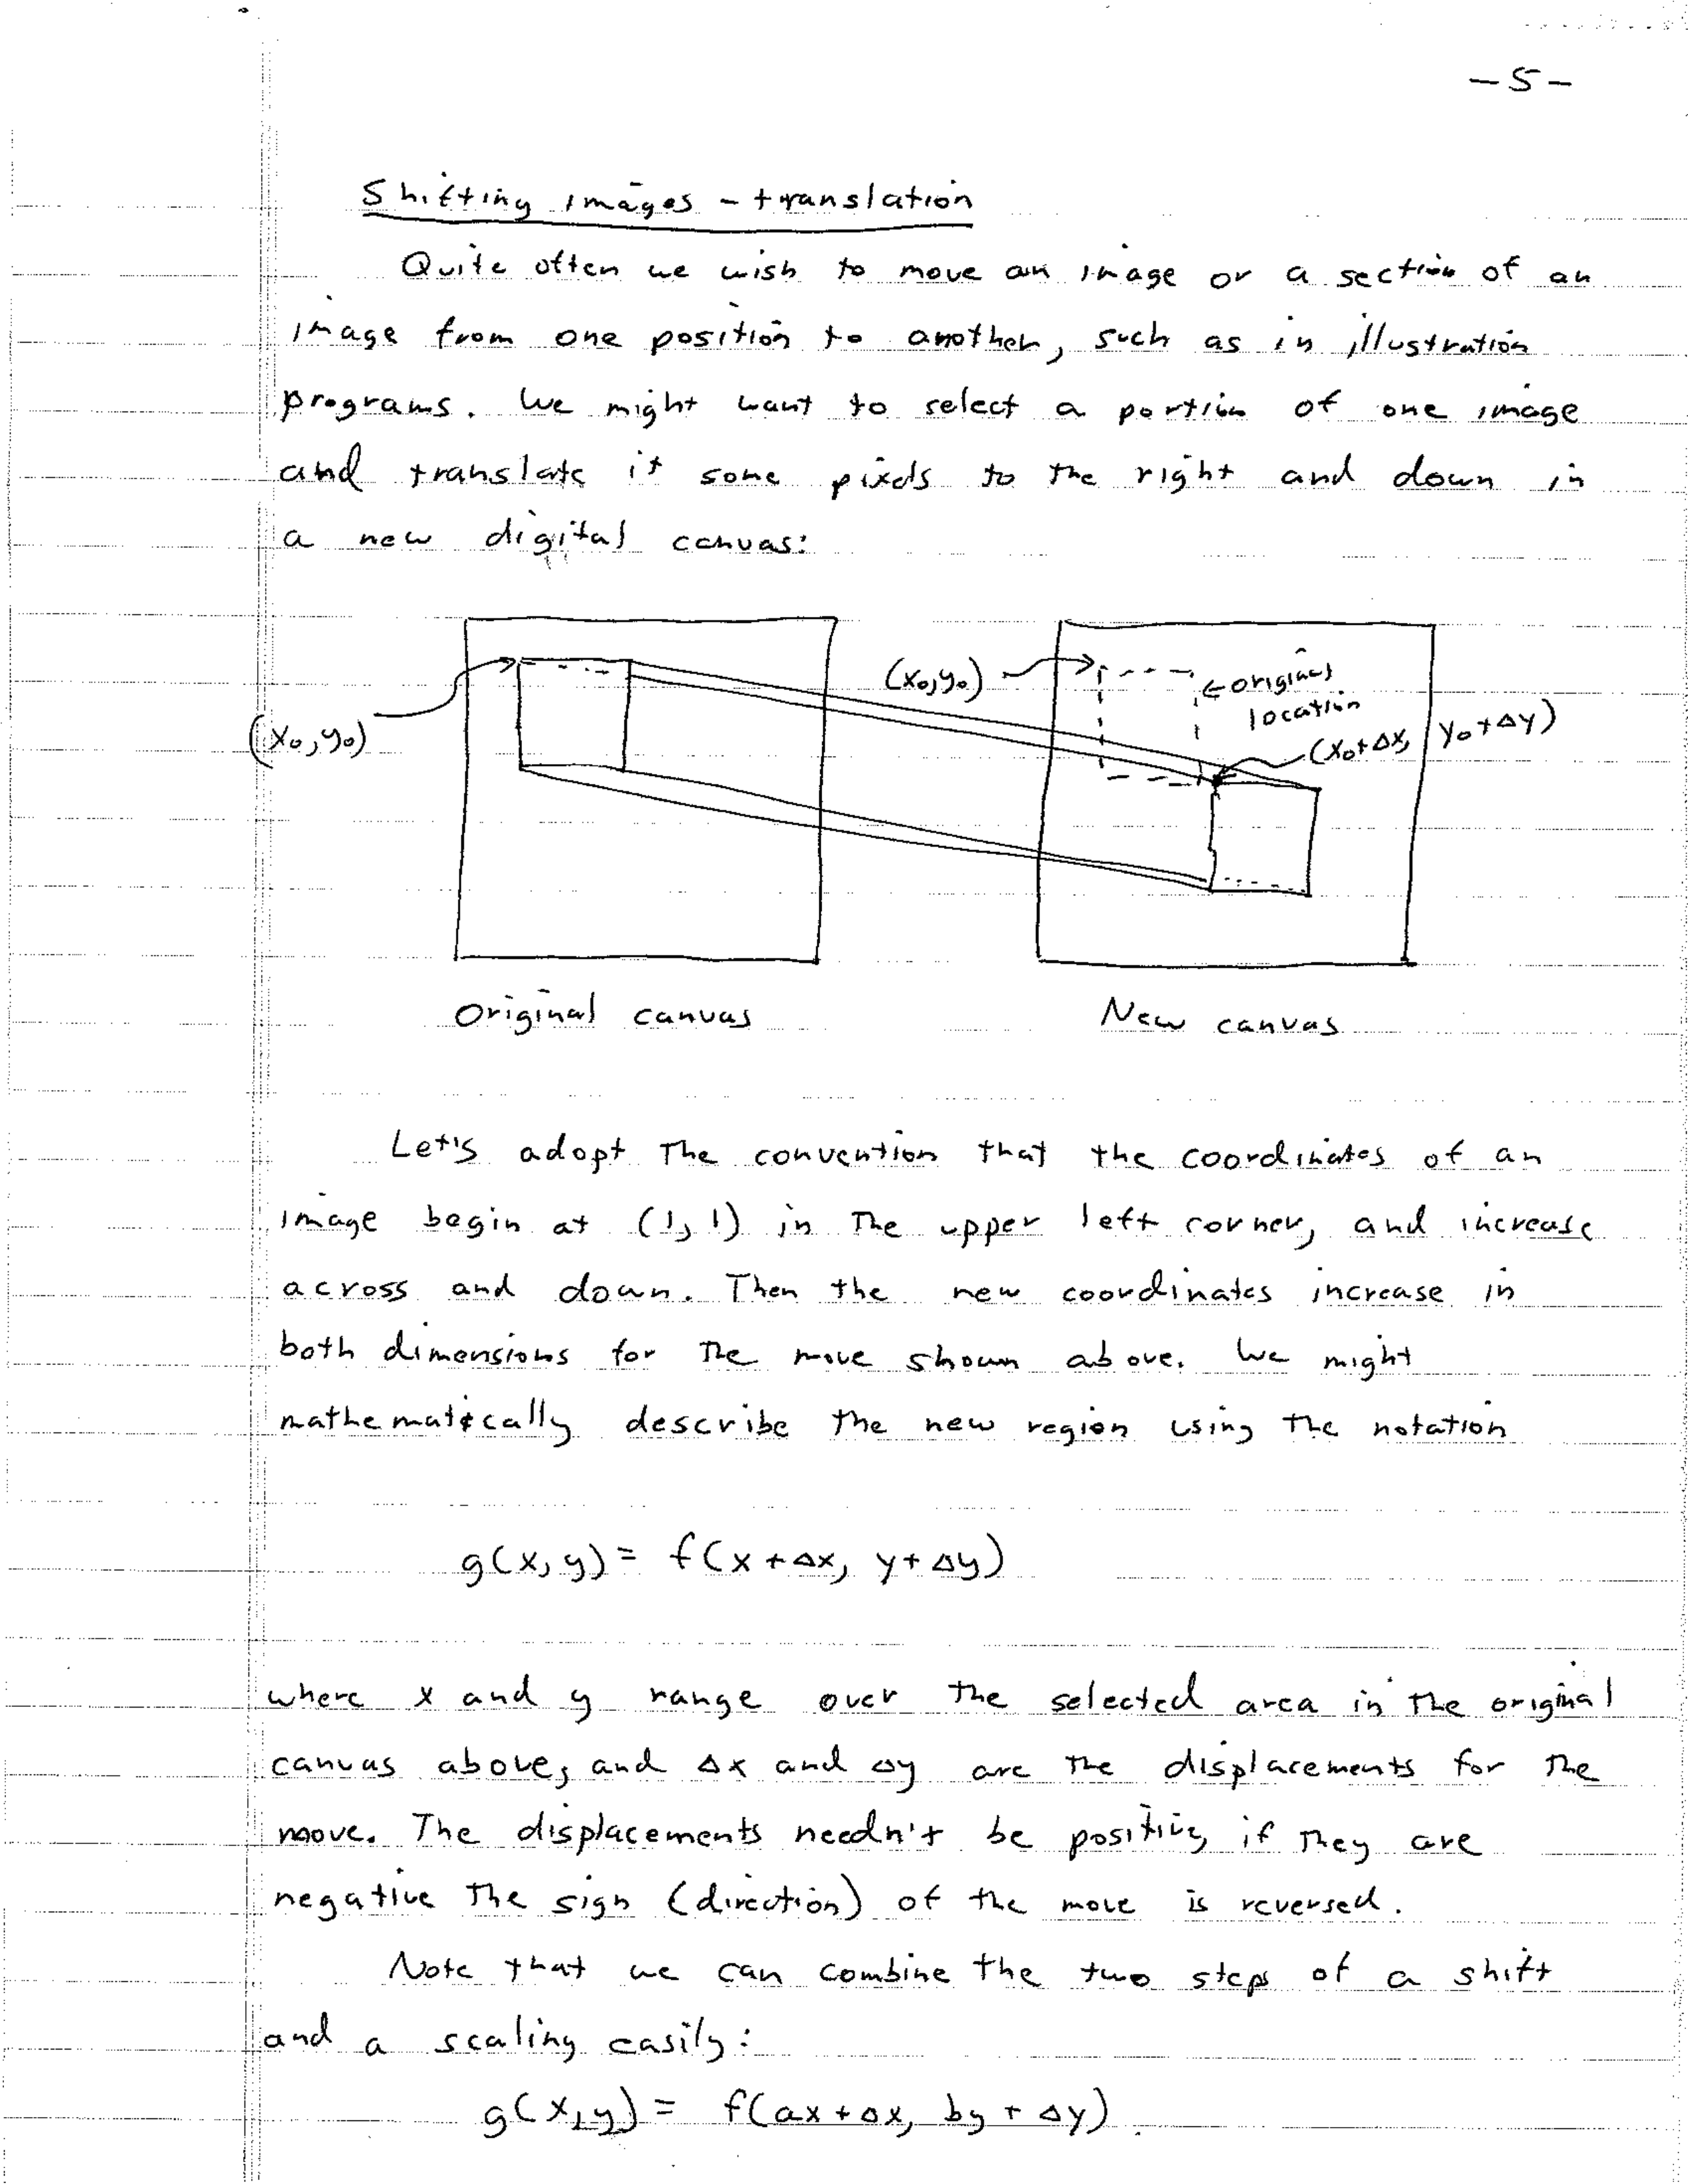 -5-
Shifting images - translation
Quite often we wish to move an image or a section of an
image from one position to another, such as in illustration
programs. We might want to select a portion of one image
and translate it some pixels to the right and down in
a new digital canvas:
(x₀,y₀)
(x₀,y₀)
←original
location
(x₀+Δx, y₀+Δy)
Original canvas
New canvas
Let's adopt the convention that the coordinates of an
image begin at (1,1) in the upper left corner, and increase
across and down. Then the new coordinates increase in
both dimensions for the move shown above. We might
mathematically describe the new region using the notation
g(x,y) = f(x+Δx, y+Δy)
where x and y range over the selected area in the original
canvas above, and Δx and Δy are the displacements for the
move. The displacements needn't be positive, if they are
negative the sign (direction) of the move is reversed.
Note that we can combine the two steps of a shift
and a scaling easily:
g(x,y) = f(ax+Δx, by+Δy).